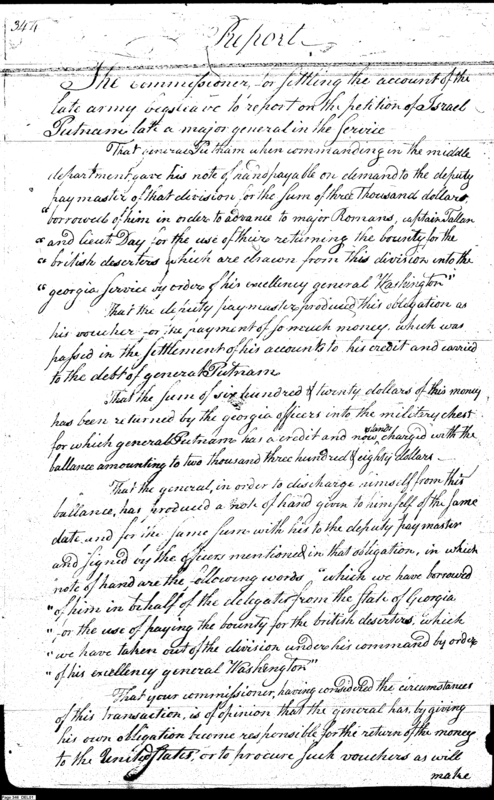 344
Report
The commissioner for settling the account of the
late army begs leave to report on the petition of Israel
Putnam late a major general in the Service
That general Putnam when commanding in the middle
department gave his note of hand payable on demand to the deputy
paymaster of that division for the sum of three thousand dollars,
"borrowed of him in order to advance to major Romans, captain Tallan
"and lieut Day for the use of their returning the bounty for the
"british deserters which are drawn from this division into the
"georgia service by order of his excellency general Washington"
That the deputy paymaster produced this obligation as
his voucher for the payment of so much money, which was
passed in the settlement of his accounts to his credit and carried
to the debt of general Putnam
That the sum of six hundred & twenty dollars of this money
has been returned by the georgia officers into the military chest
for which general Putnam has a credit and now stands charged with the
ballance amounting to two thousand three hundred & eighty dollars
That the general, in order to discharge himself from this
ballance, has produced a note of hand given to himself of the same
date and for the same sum with his to the deputy paymaster
and signed by the officers mentioned in that obligation, in which
note of hand are the following words "which we have borrowed
"of him in behalf of the delegates from the State of Georgia
"for the use of paying the bounty for the british deserters, which
"we have taken out of the division under his command by order
"of his excellency general Washington"
That your commissioner, having considered the circumstances
of this transaction, is of opinion that the general has, by giving
his own obligation become responsible for the return of the money
to the United States, or to procure such vouchers as will
make